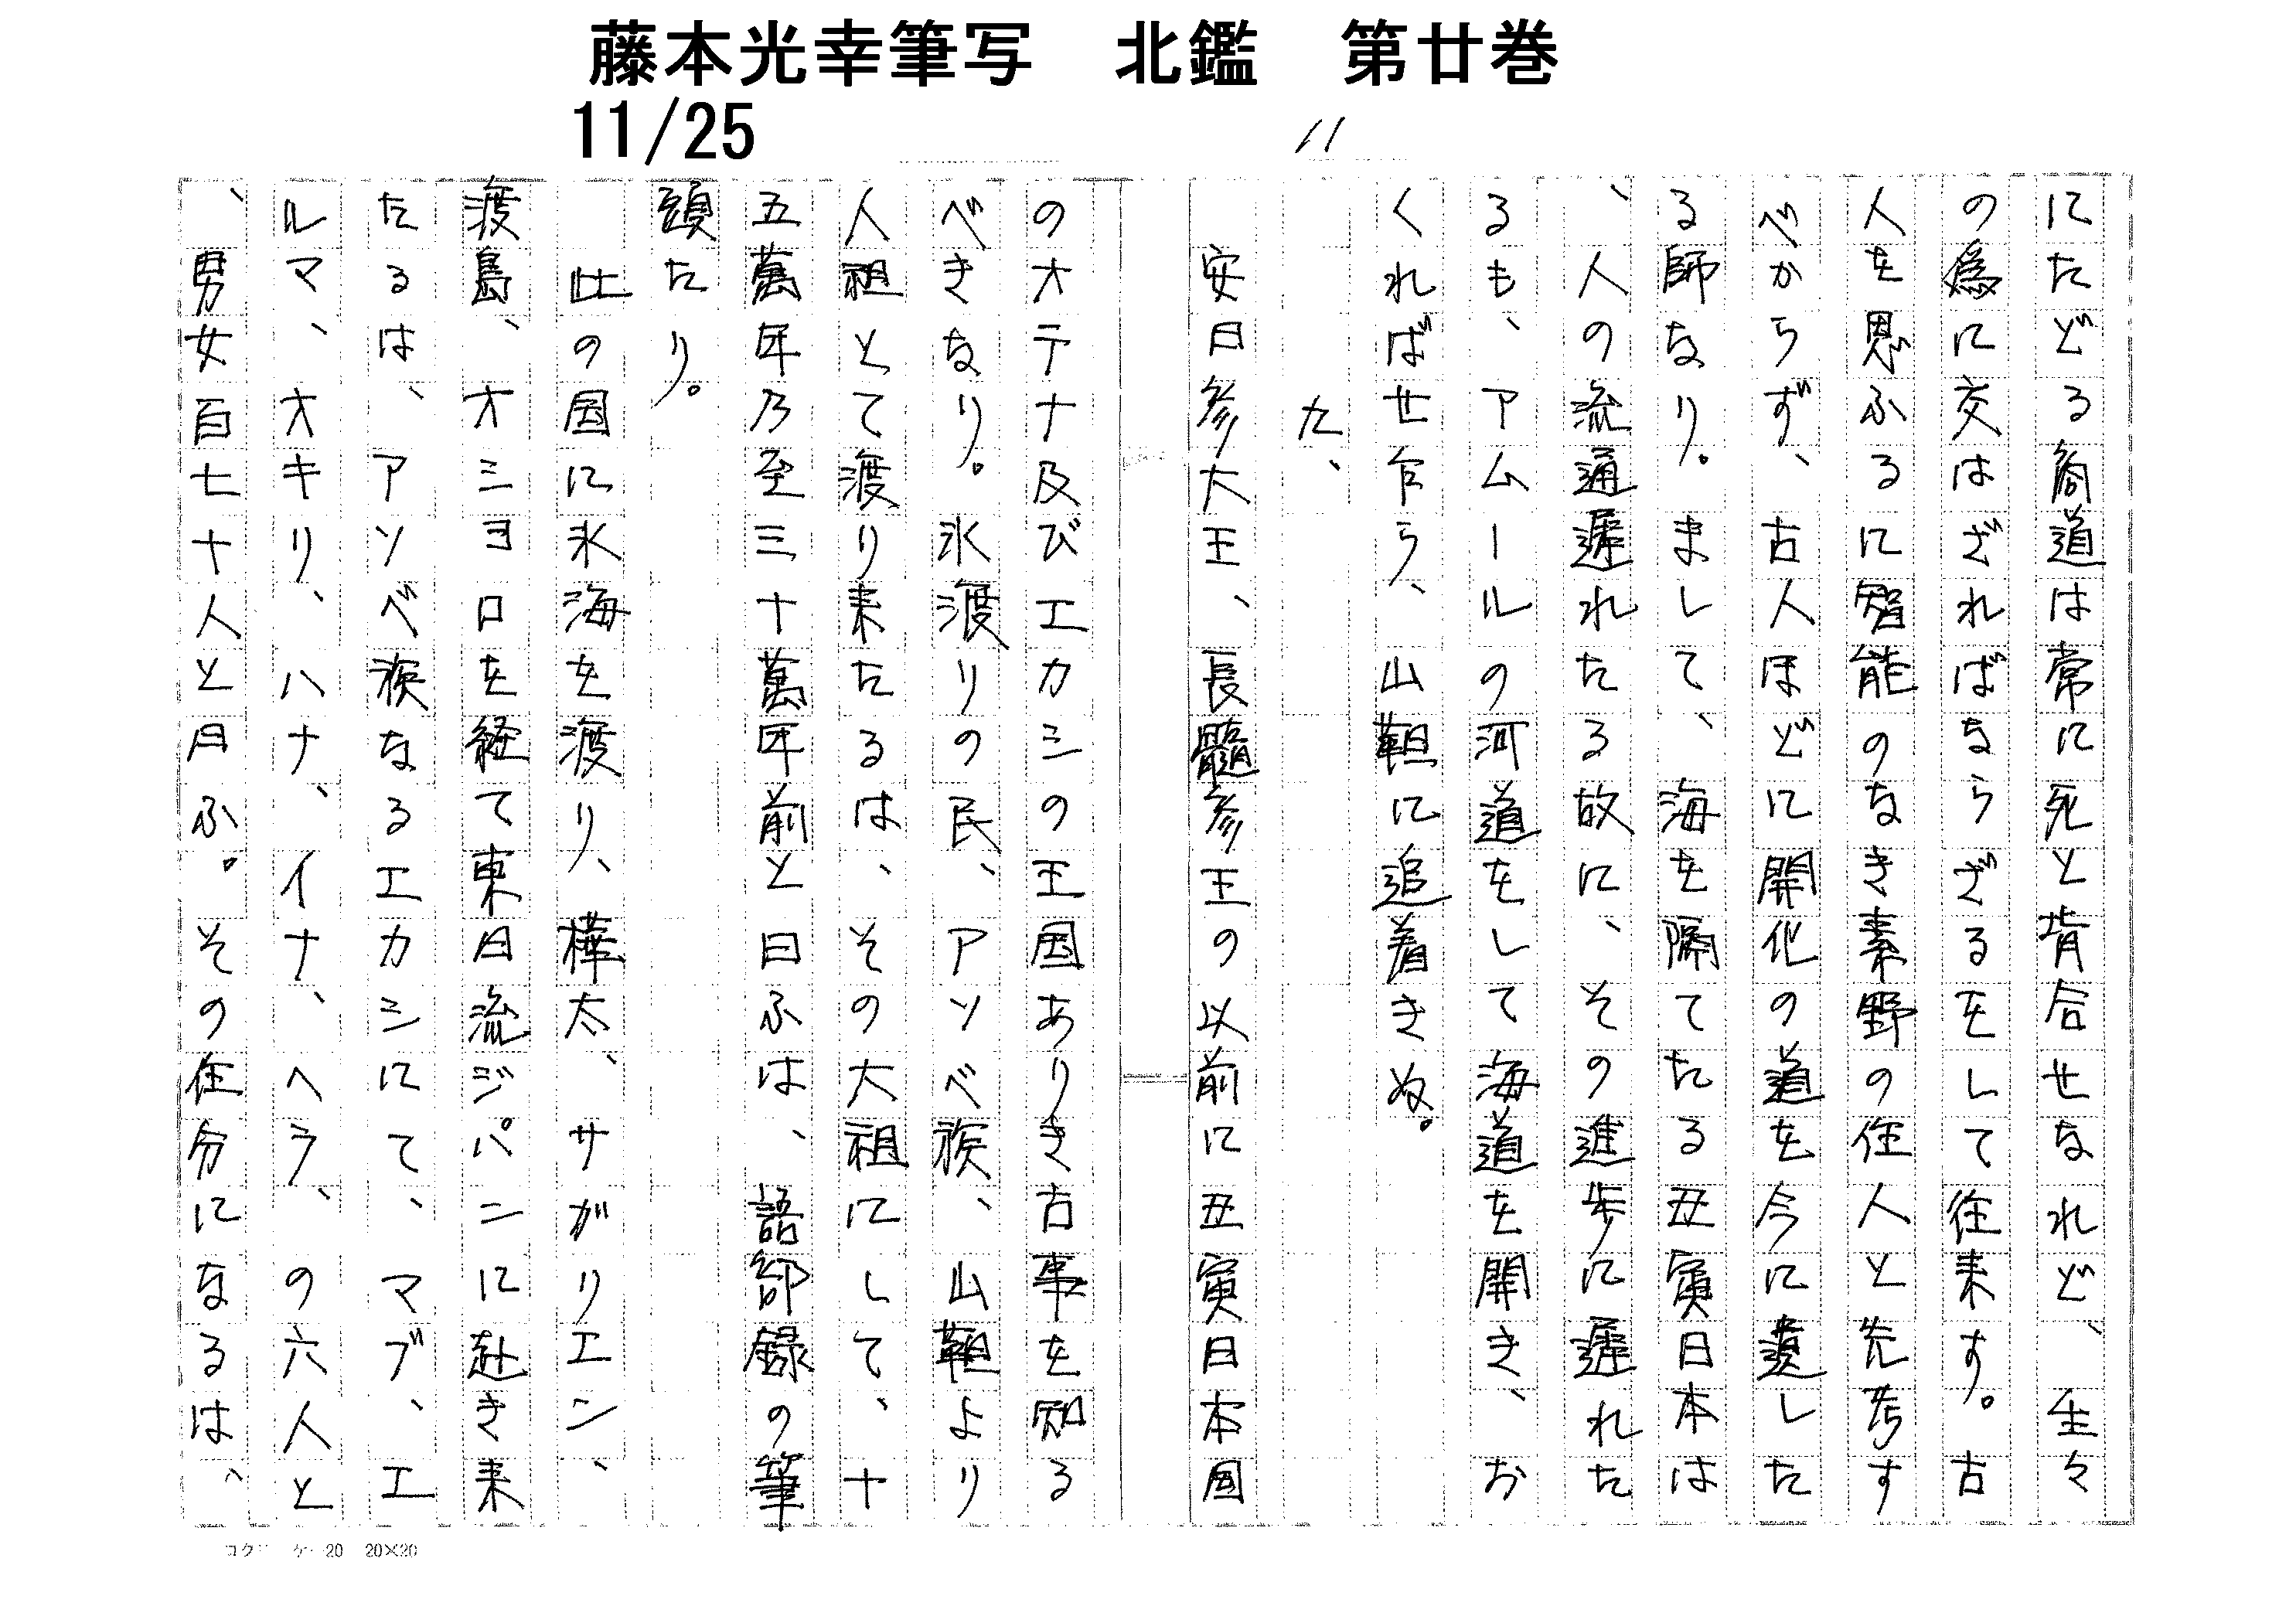 藤本光幸筆写　北鑑　第廿巻
11/25
11
にたどる商道は常に死と背合せなれど、生々
の為に交はざればならざるをして往来す。古
人を思ふるに智能のなき素野の住人と先考す
べからず、古人ほどに開化の道を今に遺した
る師なり。まして、海を隔てたる丑寅日本は
、人の流通遅れたる故に、その進歩に遅れた
るも、アムールの河道をして海道を開き、お
くれば世乍ら、山靼に追着きぬ。
九、
安日彦大王、長髄彦王の以前に丑寅日本国
のオテナ及びエカシの王国ありき古事を知る
べきなり。氷渡りの民、アソベ族、山靼より
人祖とて渡り来たるは、その大祖にして、十
五萬年乃至三十萬年前と曰ふは、語部録の筆
頭たり。
此の国に氷海を渡り、樺太、サガリエン、
渡島、オショロを経て東日流ジパンに赴き来
たるは、アソベ族なるエカシにて、マブ、エ
ルマ、オキリ、ハナ、イナ、ヘラ、の六人と
、男女百七十人と曰ふ。その住分になるは、
コクヨ　ケ-20　20×20